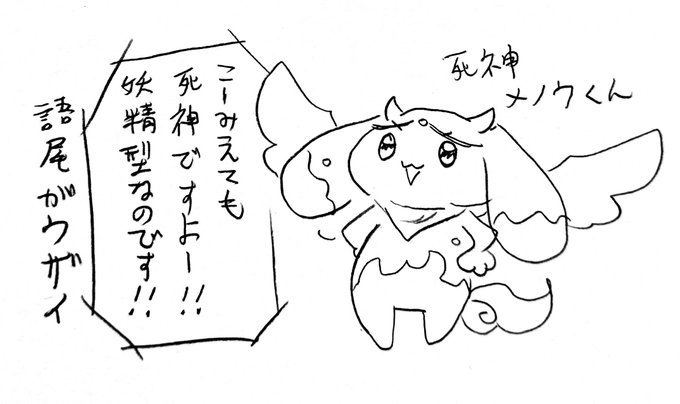 死神
メノウくん
こーみえても
死神ですよー!!
妖精型なのです!!
語尾がウザイ